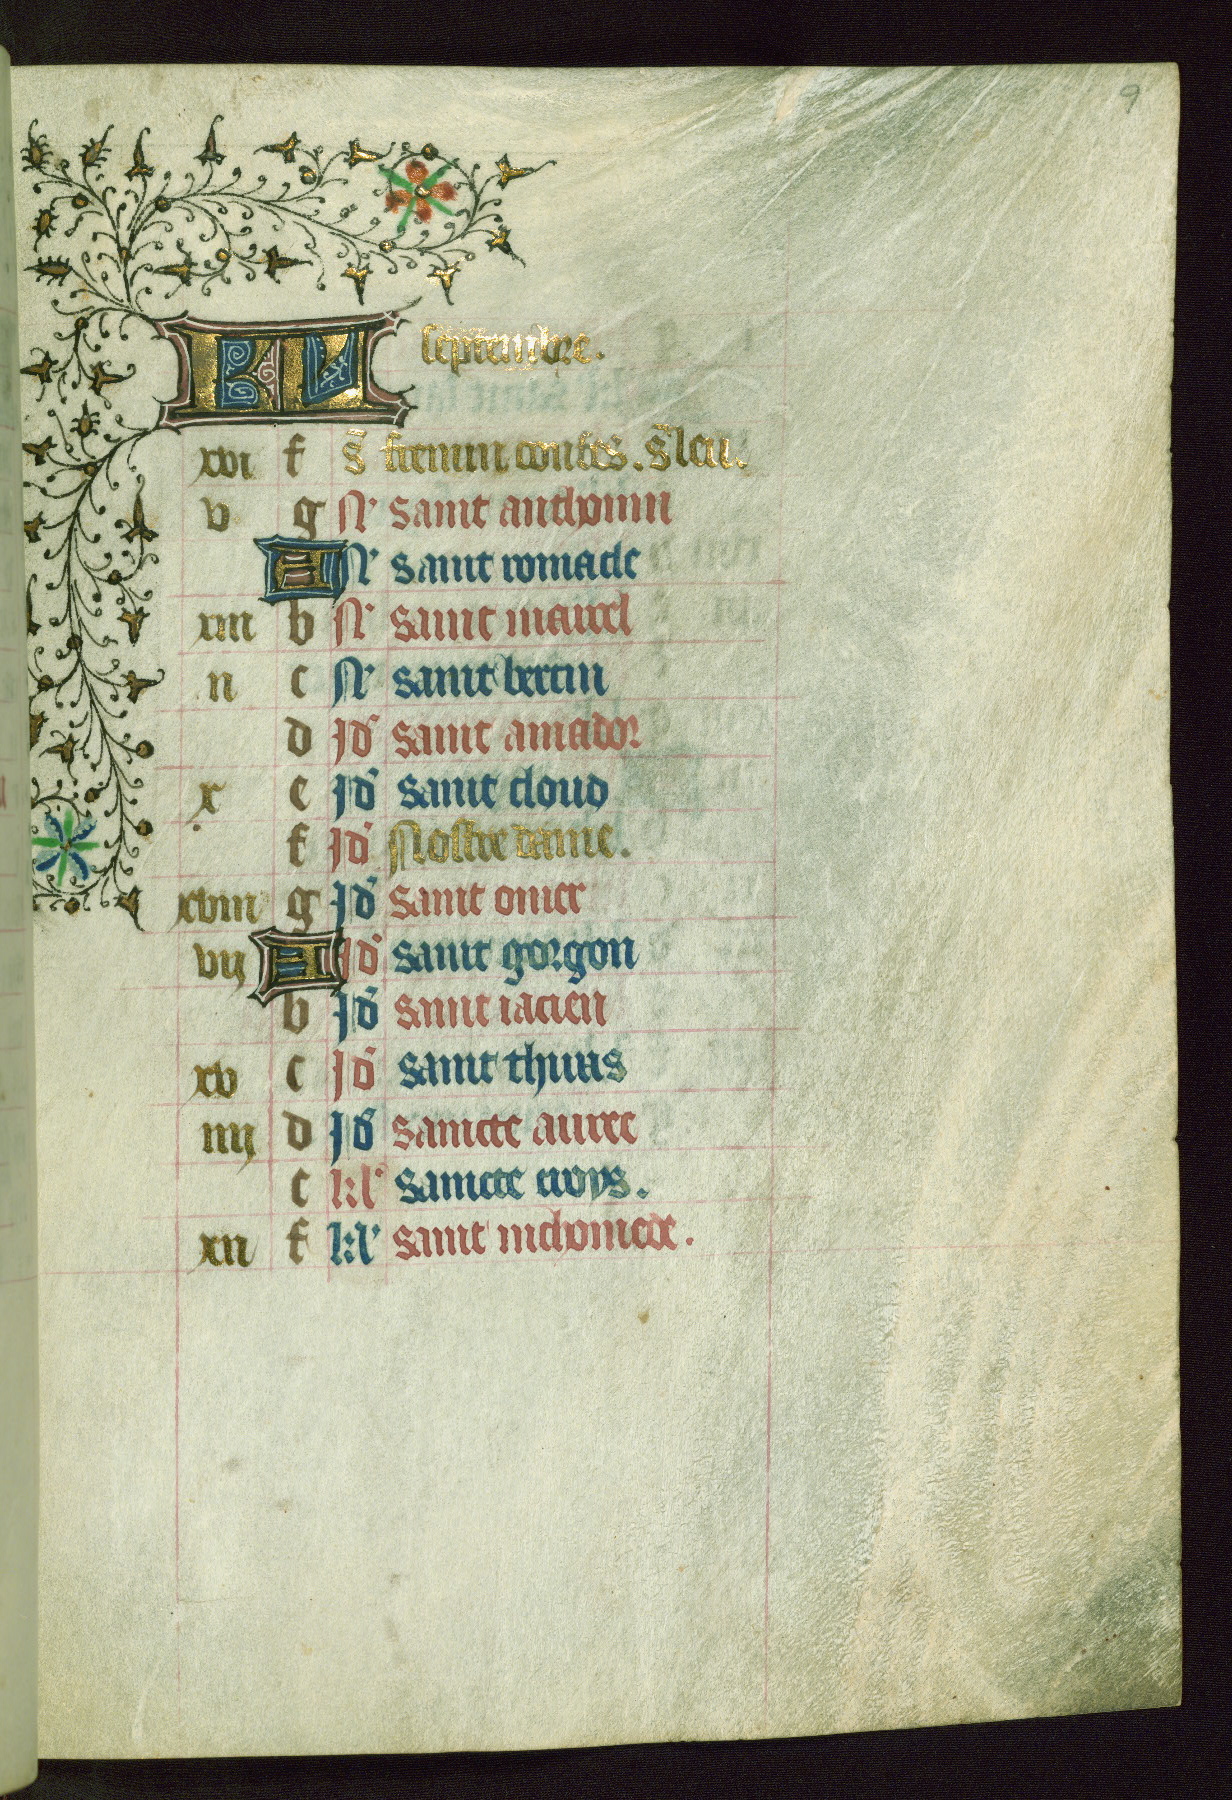 9
KL septembre.
xvi f s̄ firmin confes. s̄ leu.
v g N' saint anthonin
A N' saint romacle
xiii b N' saint marcel
ii c N' saint bertin
d Id' saint amador
x e Id' saint cloud
f Id' Nostre dame.
xviii g Id' saint omer
vij A Id' saint gorgon
b Id' saint
xv c Id' saint
iiij d Id' saincte auree
e kl' saincte croys.
xii f kl' saint nichomede.